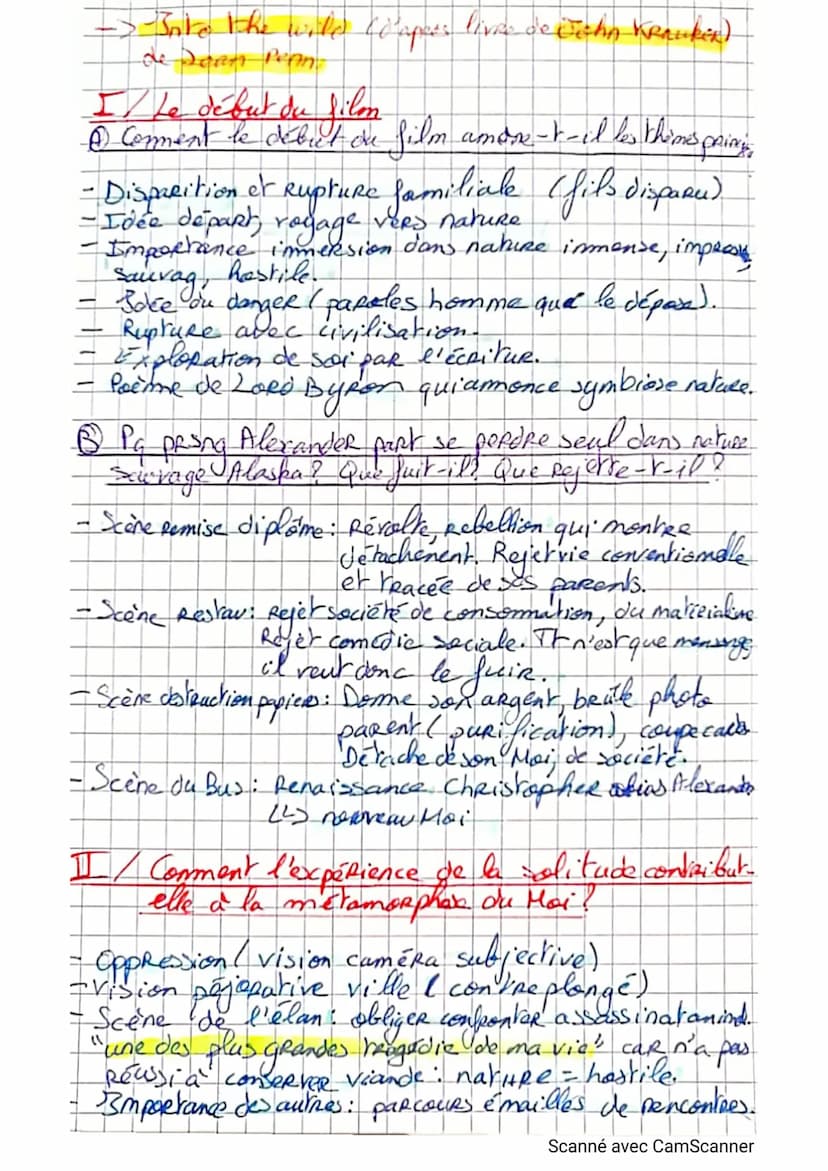 -> Into the wild (d'après livre de John Krauker)
de Sean Penn.
I/ Le début du film
Ⓐ Comment le début du film amène-t-il les thèmes princi.
- Disparition et Rupture familiale (fils disparu)
- Idée départ, voyage vers nature
- Importance immersion dans nature immense,
sauvag, hostile.
- Idée du danger (paroles homme que le dépose).
- Rupture avec civilisation.
- Exploration de soi par l'écriture.
- Poème de Lord Byron qui annonce symbiose nature.
Ⓑ Pq prsng Alexander part se perdre seul dans nature
sauvage Alaska? Que fuit-il? Que rejette-t-il?
- Scène remise diplôme: Révolte, rebellion qui montre
détachement. Rejet vie conventionnelle
et tracée de ses parents.
- Scène Restau: Rejet société de consommation, du
Rejet comédie sociale. Tt n'est que mensonge
il veut donc le fuir.
- Scène destruction papiers: Donne son argent, brûle photo
parent (purification), coupe carte
Détache de son Moi, de société.
- Scène du Bus: Renaissance Christopher alias Alexander
(↳) nouveau Moi
II/ Comment l'expérience de la solitude contribut-
elle à la métamorphose du Moi?
- Oppression (vision caméra subjective)
- Vision péjorative ville (contre plongé)
- Scène de l'élan: obliger confronter assassinat
"une des plus grandes tragédie de ma vie" car n'a pas
Réussi à conserver viande: nature = hostile.
- Importance des autres: parcours émaillés de rencontres.
Scanné avec CamScanner